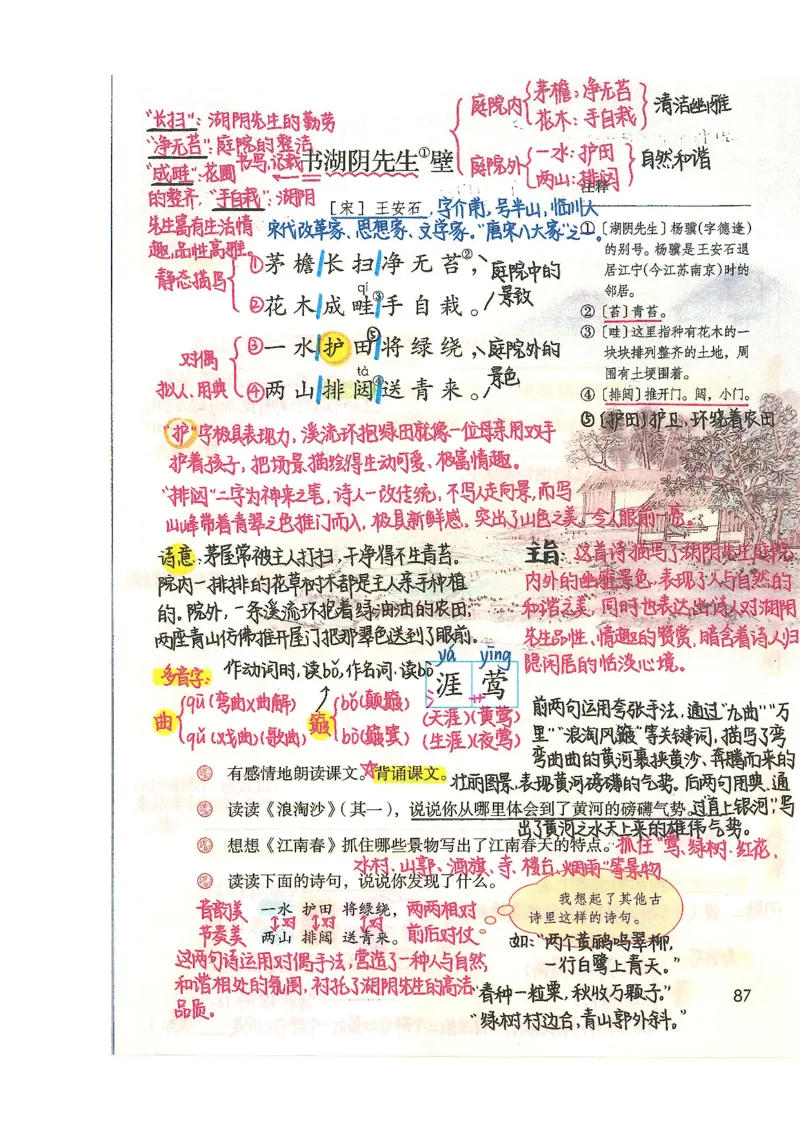 "长扫"：湖阴先生的勤劳
"净无苔"：庭院的整洁
"成畦"：花圃
的整齐，"手自栽"：湖阴
先生富有生活情
趣，品性高雅。
庭院内
茅檐：净无苔
花木：手自栽
清洁幽雅
庭院外
一水：护田
两山：排闼
自然和谐
书写，记载
书湖阴先生①壁
［宋］王安石，字介甫，号半山，临川人
宋代改革家、思想家、文学家。"唐宋八大家"之一。
静态描写
①茅檐/长扫/净无苔②，
庭院中的
景致
qí
②花木/成畦③/手自栽。
对偶
拟人、用典
③一水/护田⑤/将绿绕，
庭院外的
景色
tà
④两山/排闼④/送青来。
注释
①〔湖阴先生〕杨骥(字德逢)
的别号。杨骥是王安石退
居江宁(今江苏南京)时的
邻居。
②〔苔〕青苔。
③〔畦〕这里指种有花木的一
块块排列整齐的土地，周
围有土埂围着。
④〔排闼〕推开门。闼，小门。
⑤〔护田〕护卫、环绕着农田
"护"字极具表现力，溪流环抱绿田就像一位母亲用双手
护着孩子，把场景描绘得生动可爱、极富情趣。
"排闼"二字为神来之笔，诗人一改传统，不写人走向景，而写
山峰带着青翠之色推门而入，极具新鲜感。突出了山色之美。令人眼前一亮。
诗意：茅屋常被主人打扫，干净得不生青苔。
院内一排排的花草树木都是主人亲手种植
的。院外，一条溪流环抱着绿油油的农田；
两座青山仿佛推开屋门把那翠色送到了眼前。
主旨：这首诗描写了湖阴先生庭院
内外的幽雅景色，表现了人与自然的
和谐之美，同时也表达出诗人对湖阴
先生品性、情趣的赞赏，暗含着诗人归
隐闲居的恬淡心境。
多音字：
作动词时，读bǒ，作名词，读bò
曲
qū(弯曲)(曲解)
qǔ(戏曲)(歌曲)
簸
bǒ(颠簸)
bò(簸箕)
yá yīng
涯 莺
(天涯)(黄莺)
(生涯)(夜莺)
前两句运用夸张手法，通过"九曲""万
里""浪淘风簸"等关键词，描写了弯
弯曲曲的黄河裹挟黄沙、奔腾而来的
壮丽图景，表现黄河磅礴的气势。后两句用典，通
过"直上银河"，写
出了黄河之水天上来的雄伟气势。
有感情地朗读课文。背诵课文。
读读《浪淘沙》（其一），说说你从哪里体会到了黄河的磅礴气势。
想想《江南春》抓住哪些景物写出了江南春天的特点。
抓住"莺、绿树、红花、
水村、山郭、酒旗、寺、楼台、烟雨"等景物
读读下面的诗句，说说你发现了什么。
音韵美
节奏美
一水 护田 将绿绕，
对 对 对
两山 排闼 送青来。
两两相对
前后对仗
这两句诗运用对偶手法，营造了一种人与自然
和谐相处的氛围，衬托了湖阴先生的高洁
品质。
我想起了其他古
诗里这样的诗句。
如："两个黄鹂鸣翠柳，
一行白鹭上青天。"
"春种一粒粟，秋收万颗子。"
"绿树村边合，青山郭外斜。"
87